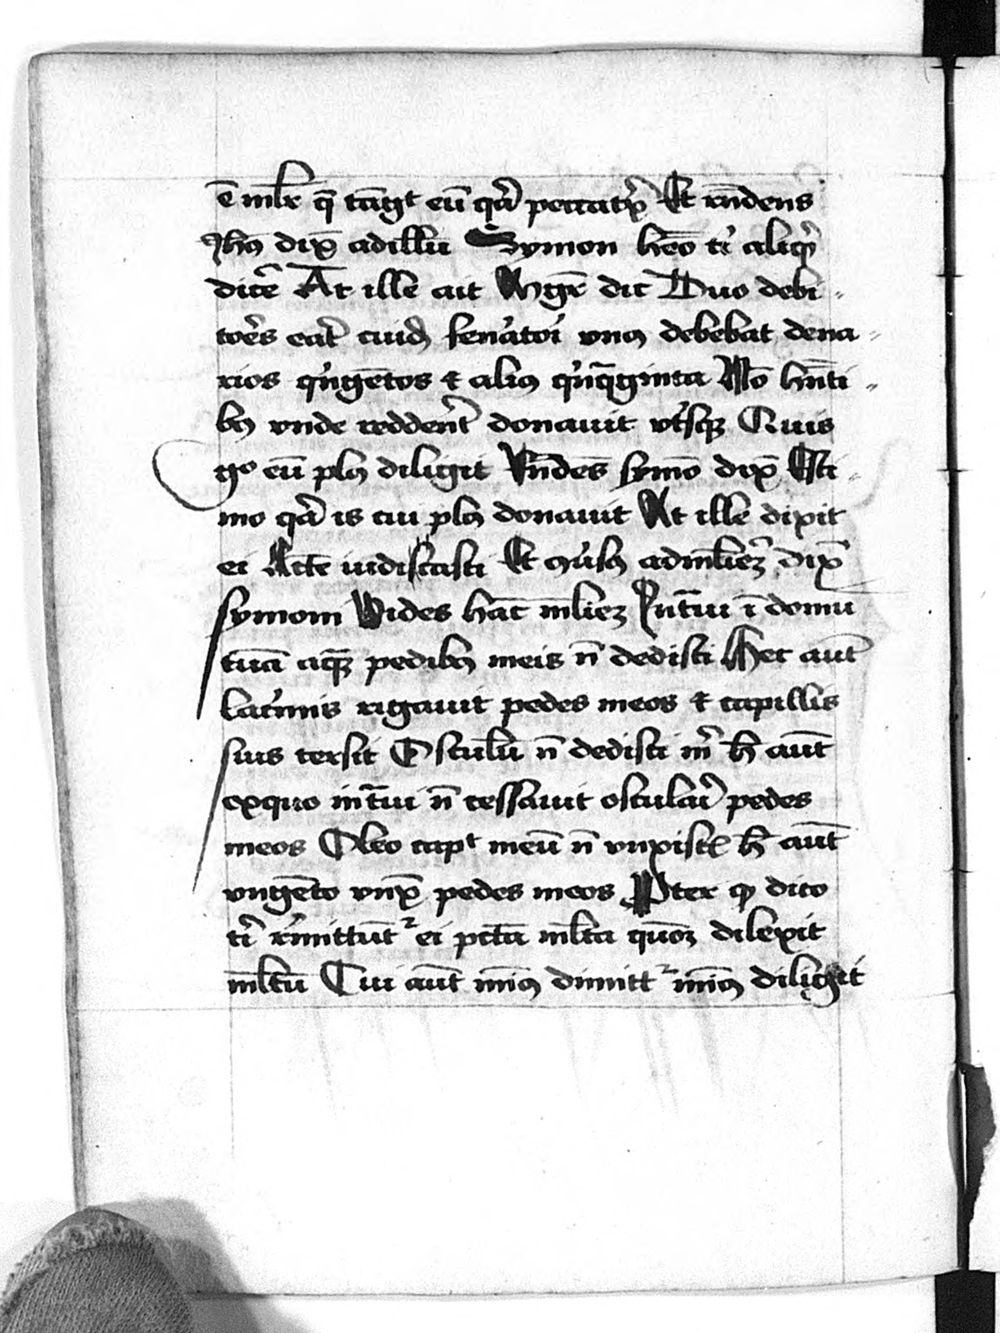 ē mlr̄ q̄ tāgt eū qr̄ peccatͬx Et rn̄dens
Jhūs dix̄ ad illū Symon hēo tͥ aliqͥd
dicē At ille ait Mgr̄ dic Duo debi-
toēs erāt cuidā fenͣtori vnꝰ debebat dena-
rios qͥngētos et aliꝰ qͥnq̄ginta Nō hn̄ti-
bꝫ vnde redderēt donauit vtͥsqꝫ Quis
gͦ eū plꝰ diligit Rn̄dēs symō dix̄ Esti-
mo qr̄ is cui plꝰ donauit At ille dixit
ei Rctē iudicasti Et ꝯuͥsꝰ ad mlr̄eꝫ dix̄
symoni Vides hāc mlr̄eꝫ Jntͣui ī domū
tuā aqͣꝫ pedibꝫ meis nō dedisti Hec aūt
lacͥmis rigauit pedes meos et capillis
suis tersit Osculū nō dedisti mͥ h̄ aūt
ex quo intͣui nō cessauit osculari pedes
meos Oleo capt meū nō vnxisti h̄ aūt
vngēto vnx̄ pedes meos Pter qͦ dico
tͥ rͤmittūtͬ ei pctā mlta qm̄ dilexit
mltū Cui aūt minꝰ dimittͬ minꝰ diligit